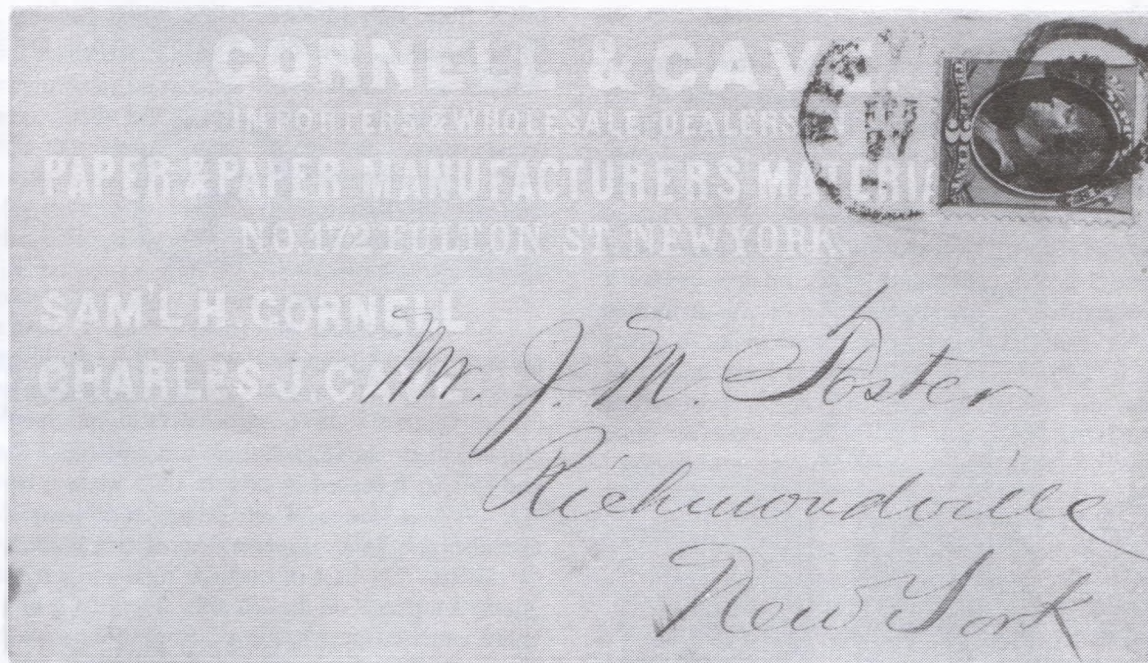 CORNELL & CAVE.
IMPORTERS & WHOLESALE DEALERS
PAPER & PAPER MANUFACTURERS MATERIA
NO. 172 FULTON ST. NEW YORK.
SAM'L H. CORNELL
CHARLES J. CAVE
NEW
Mr. J. M. Foster
Richmondville
New York